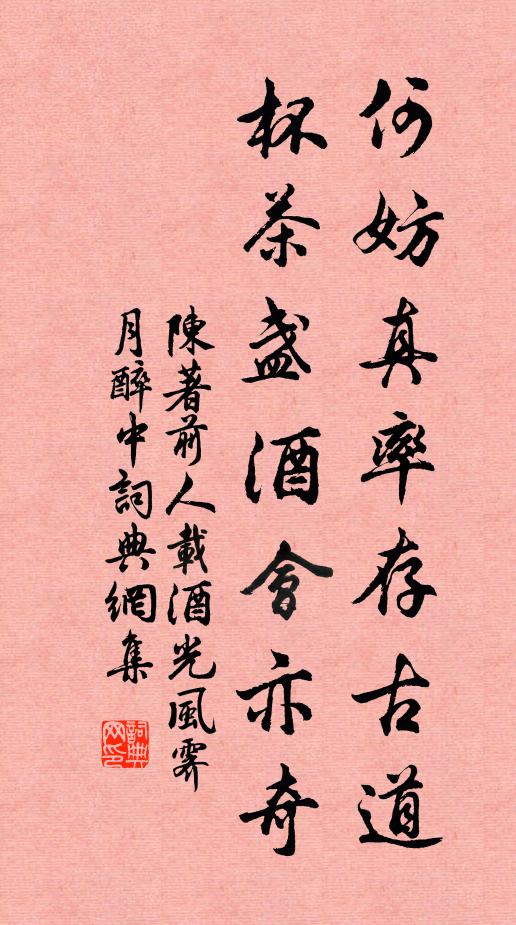 何妨真率存古道
杯茶盏酒會亦奇
陳著前人載酒光風霽
月醉中詞典網集
詞典網印